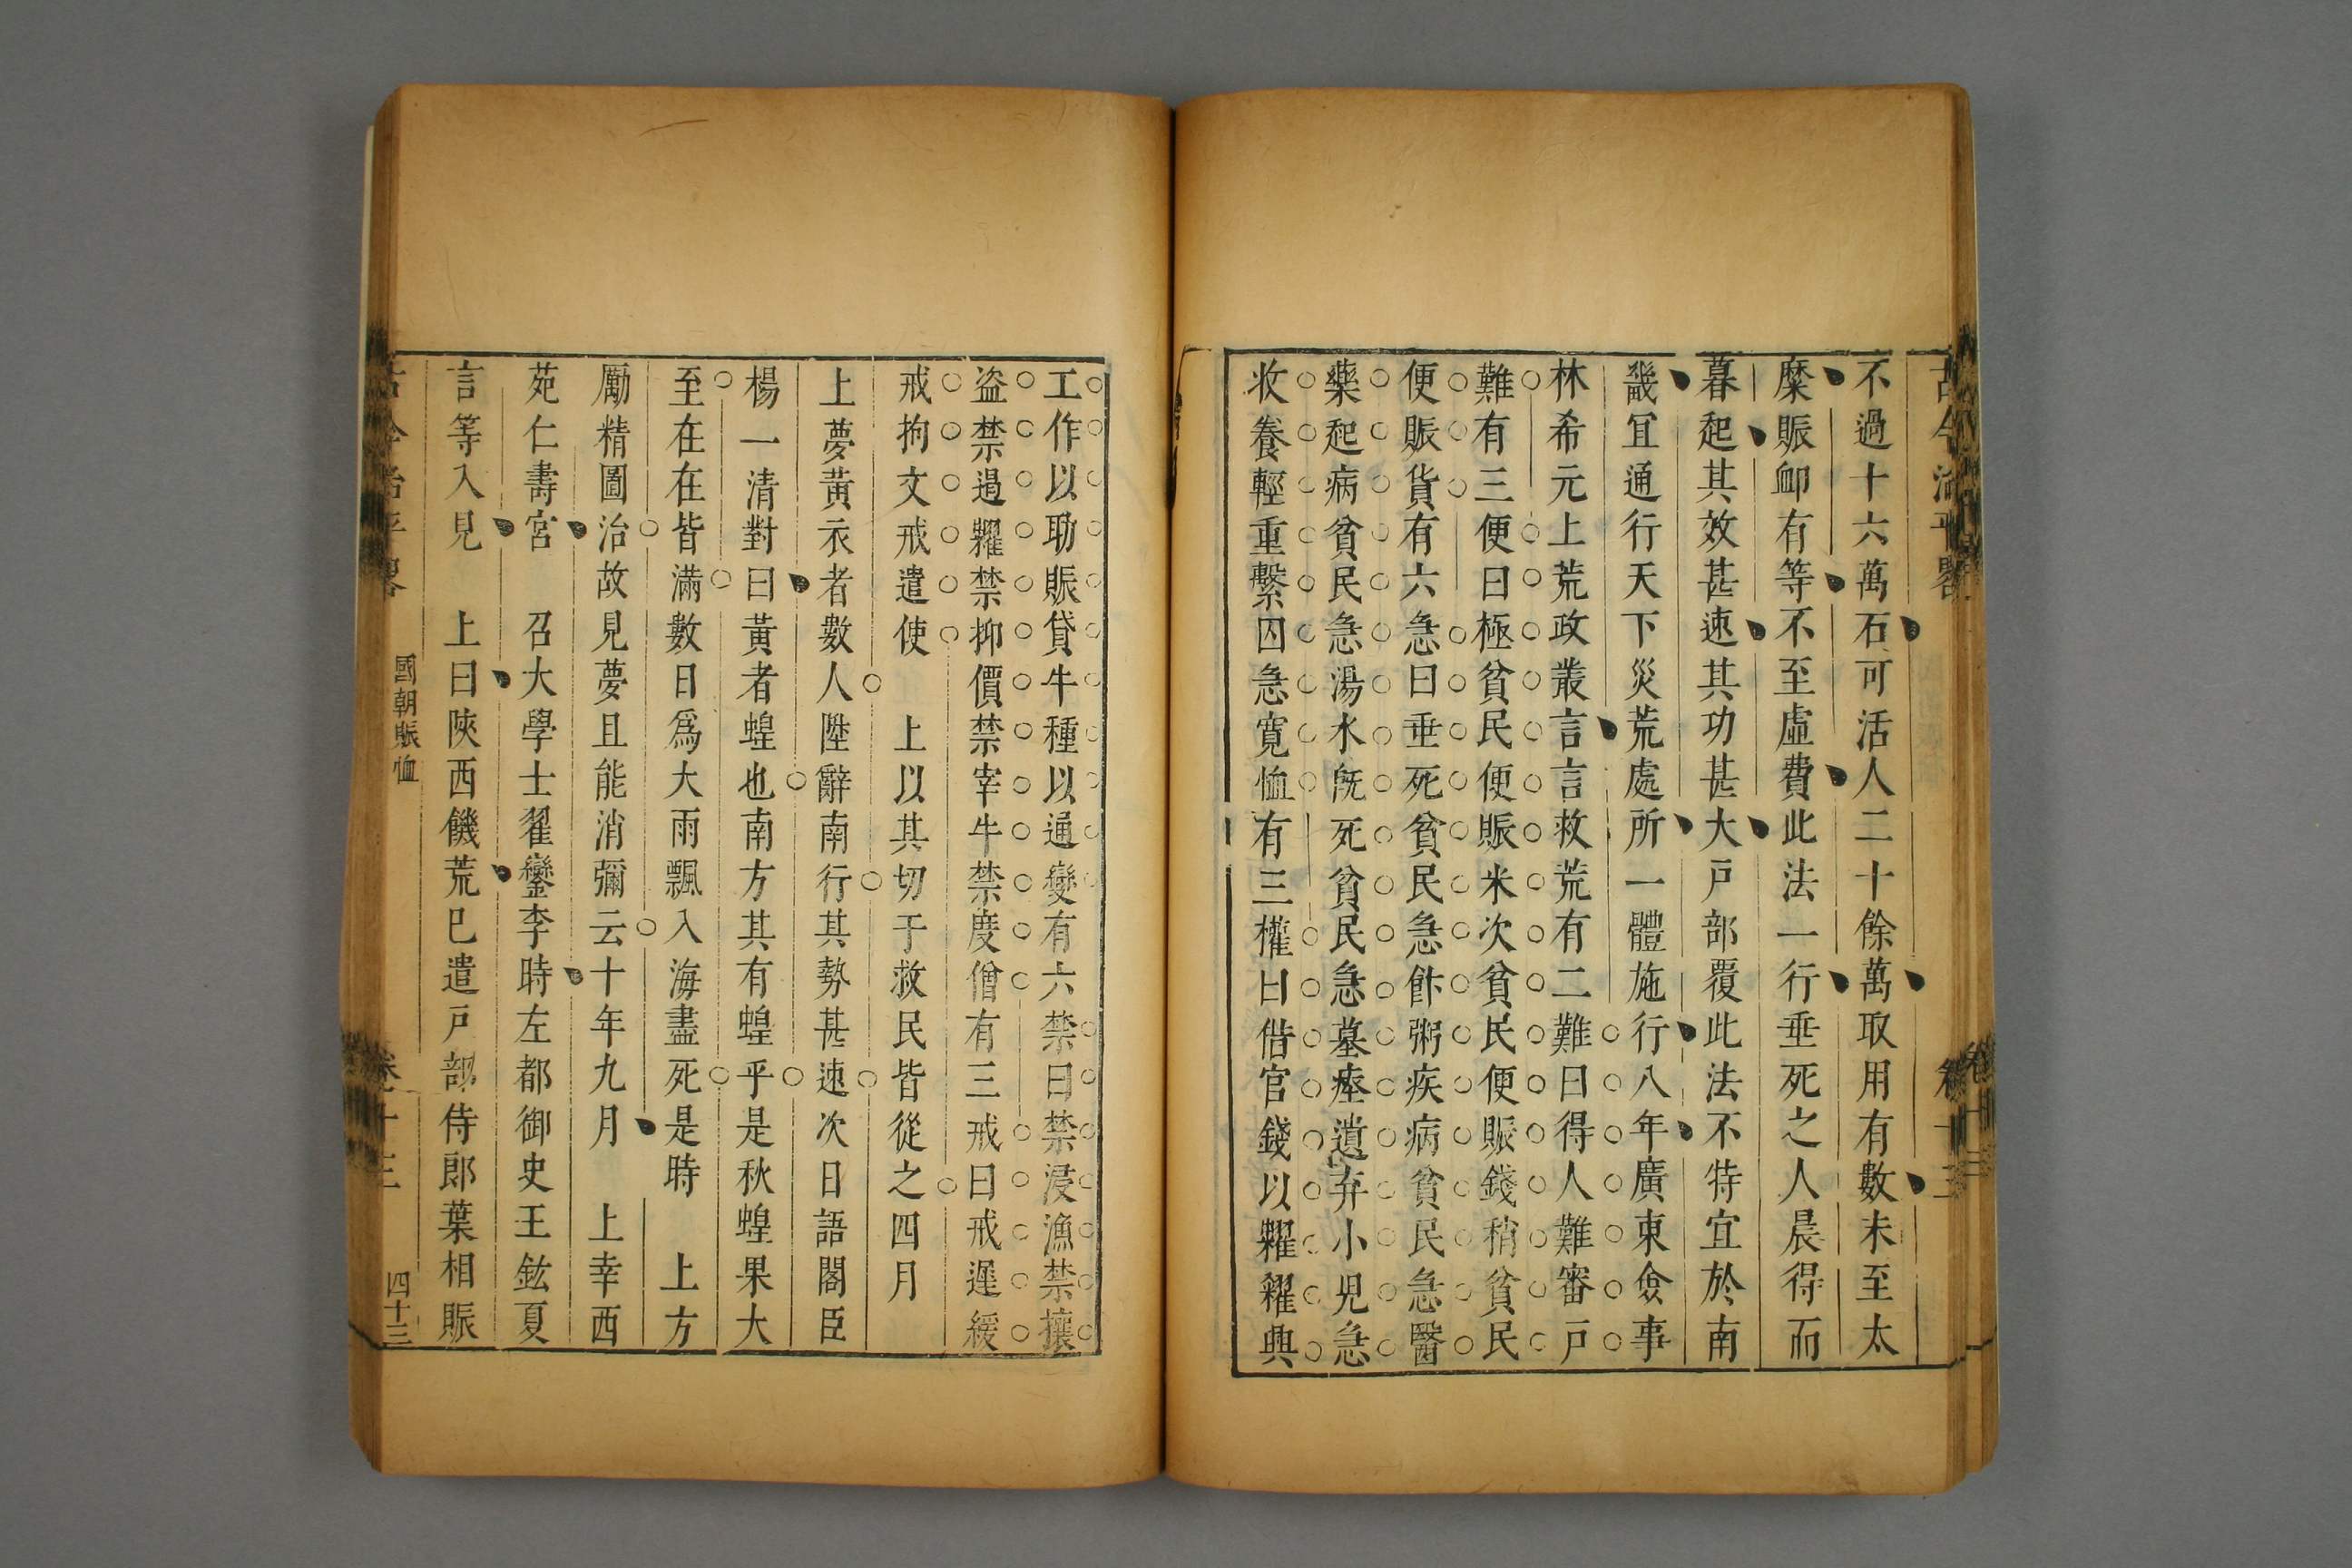 古今治平畧
卷十三
不過十六萬石可活人二十餘萬取用有數未至太
糜賑䘏有等不至虛費此法一行垂死之人晨得而
暮起其效甚速其功甚大戸部覆此法不特宜於南
畿宜通行天下災荒處所一體施行八年廣東僉事
林希元上荒政叢言言救荒有二難曰得人難審戸
難有三便曰極貧民便賑米次貧民便賑錢稍貧民
便賑貨有六急曰垂死貧民急飦粥疾病貧民急醫
藥起病貧民急湯水旣死貧民急墓瘞遺弃小児急
收養輕重繫囚急寛恤有三權曰借官錢以糶糴興
工作以助賑貸牛種以通變有六禁曰禁浸漁禁攘
盜禁遏糴禁抑價禁宰牛禁度僧有三戒曰戒遲緩
戒拘文戒遣使 上以其切于救民皆從之四月
上夢黃衣者數人陛辭南行其勢甚速次日語閣臣
楊一清對曰黃者蝗也南方其有蝗乎是秋蝗果大
至在在皆滿數日爲大雨飄入海盡死是時 上方
勵精圖治故見夢且能消彌云十年九月 上幸西
苑仁壽宮 召大學士翟鑾李時左都御史王鋐夏
言等入見 上曰陝西饑荒已遣戸部侍郎葉相賑
古今治平畧
國朝賑恤
卷十三
四十三